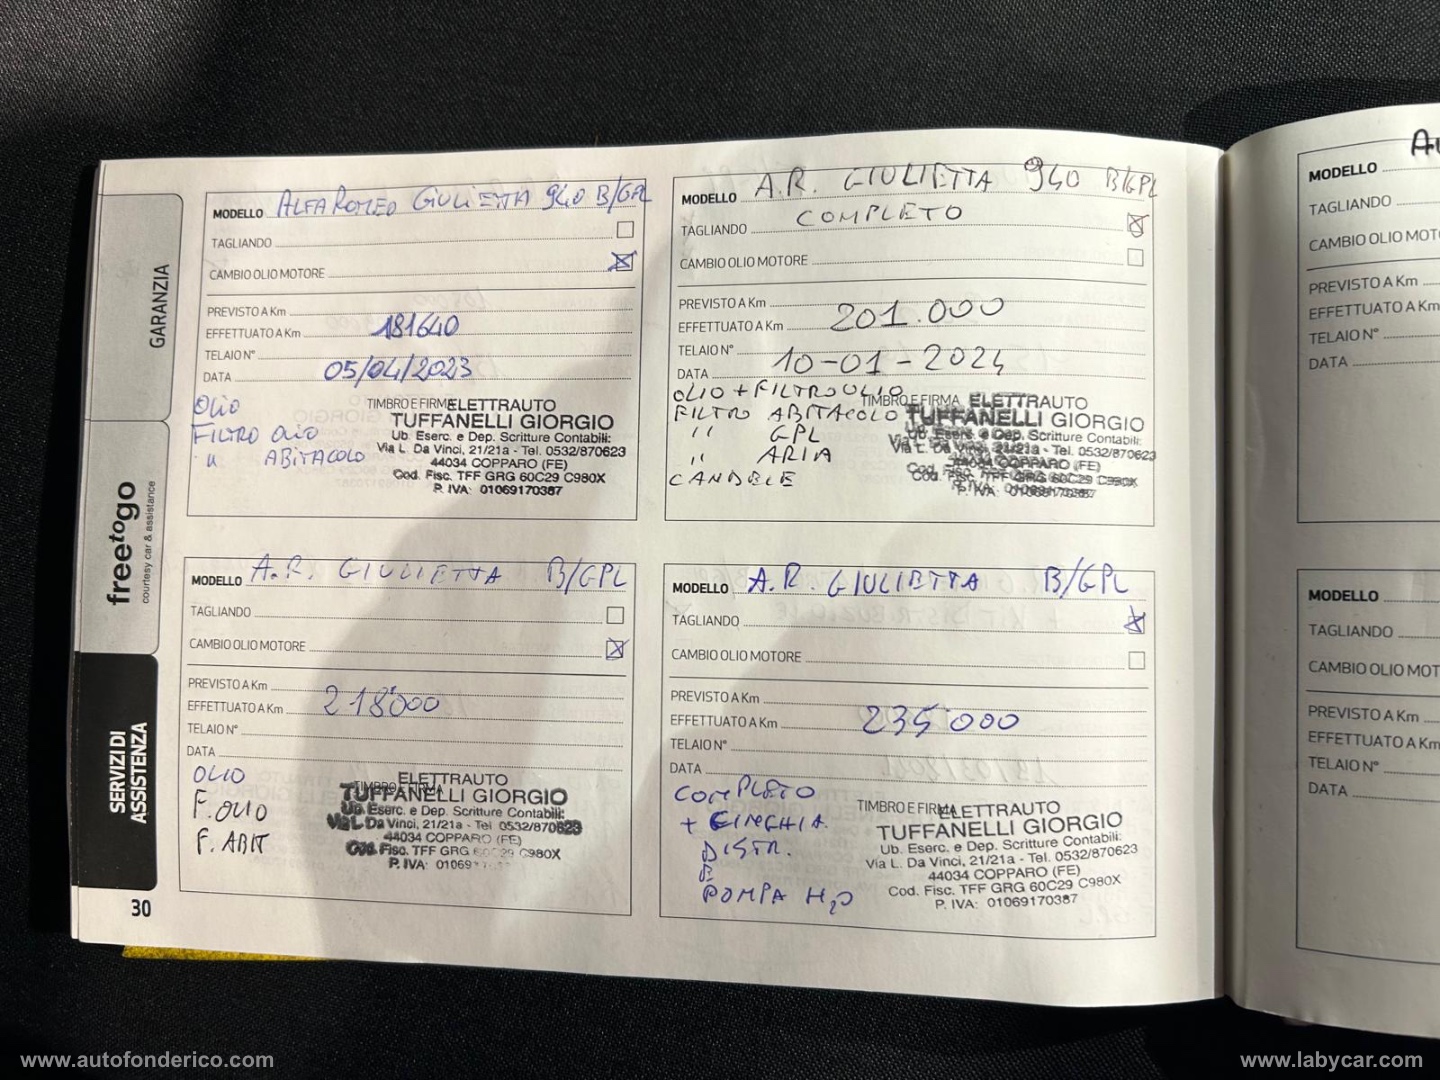 GARANZIA
freetogo
courtesy car & assistance
SERVIZI DI
ASSISTENZA
30
MODELLO ALFA ROMEO GIULIETTA 940 B/GPL
TAGLIANDO
CAMBIO OLIO MOTORE
PREVISTO A Km
EFFETTUATO A Km 181640
TELAIO N°
DATA 05/04/2023
OLIO
FILTRO OLIO
" ABITACOLO
TIMBRO E FIRMA
ELETTRAUTO
TUFFANELLI GIORGIO
Ub. Eserc. e Dep. Scritture Contabili:
Via L. Da Vinci, 21/21a - Tel. 0532/870623
44034 COPPARO (FE)
Cod. Fisc. TFF GRG 60C29 C980X
P. IVA: 01069170387
MODELLO A.R. GIULIETTA 940 B/GPL
TAGLIANDO COMPLETO
CAMBIO OLIO MOTORE
PREVISTO A Km
EFFETTUATO A Km 201.000
TELAIO N°
DATA 10-01-2024
OLIO + FILTRO OLIO
FILTRO ABITACOLO
" GPL
" ARIA
CANDELE
TIMBRO E FIRMA
ELETTRAUTO
TUFFANELLI GIORGIO
Ub. Eserc. e Dep. Scritture Contabili:
Via L. Da Vinci, 21/21a - Tel. 0532/870623
44034 COPPARO (FE)
Cod. Fisc. TFF GRG 60C29 C980X
P. IVA: 01069170387
MODELLO A.R. GIULIETTA B/GPL
TAGLIANDO
CAMBIO OLIO MOTORE
PREVISTO A Km
EFFETTUATO A Km 218'000
TELAIO N°
DATA
OLIO
F. OLIO
F. ABIT
TIMBRO E FIRMA
ELETTRAUTO
TUFFANELLI GIORGIO
Ub. Eserc. e Dep. Scritture Contabili:
Via L. Da Vinci, 21/21a - Tel 0532/870623
44034 COPPARO (FE)
Cod. Fisc. TFF GRG 60C29 C980X
P. IVA: 01069
MODELLO A.R. GIULIETTA B/GPL
TAGLIANDO
CAMBIO OLIO MOTORE
PREVISTO A Km
EFFETTUATO A Km 235'000
TELAIO N°
DATA
COMPLETO
+ CINGHIA
DISTR.
E
POMPA H2O
TIMBRO E FIRMA
ELETTRAUTO
TUFFANELLI GIORGIO
Ub. Eserc. e Dep. Scritture Contabili:
Via L. Da Vinci, 21/21a - Tel. 0532/870623
44034 COPPARO (FE)
Cod. Fisc. TFF GRG 60C29 C980X
P. IVA: 01069170387
MODELLO
TAGLIANDO
CAMBIO OLIO MOT
PREVISTO A Km
EFFETTUATO A Km
TELAIO N°
DATA
MODELLO
TAGLIANDO
CAMBIO OLIO MOT
PREVISTO A Km
EFFETTUATO A Km
TELAIO N°
DATA
www.autofonderico.com
www.labycar.com